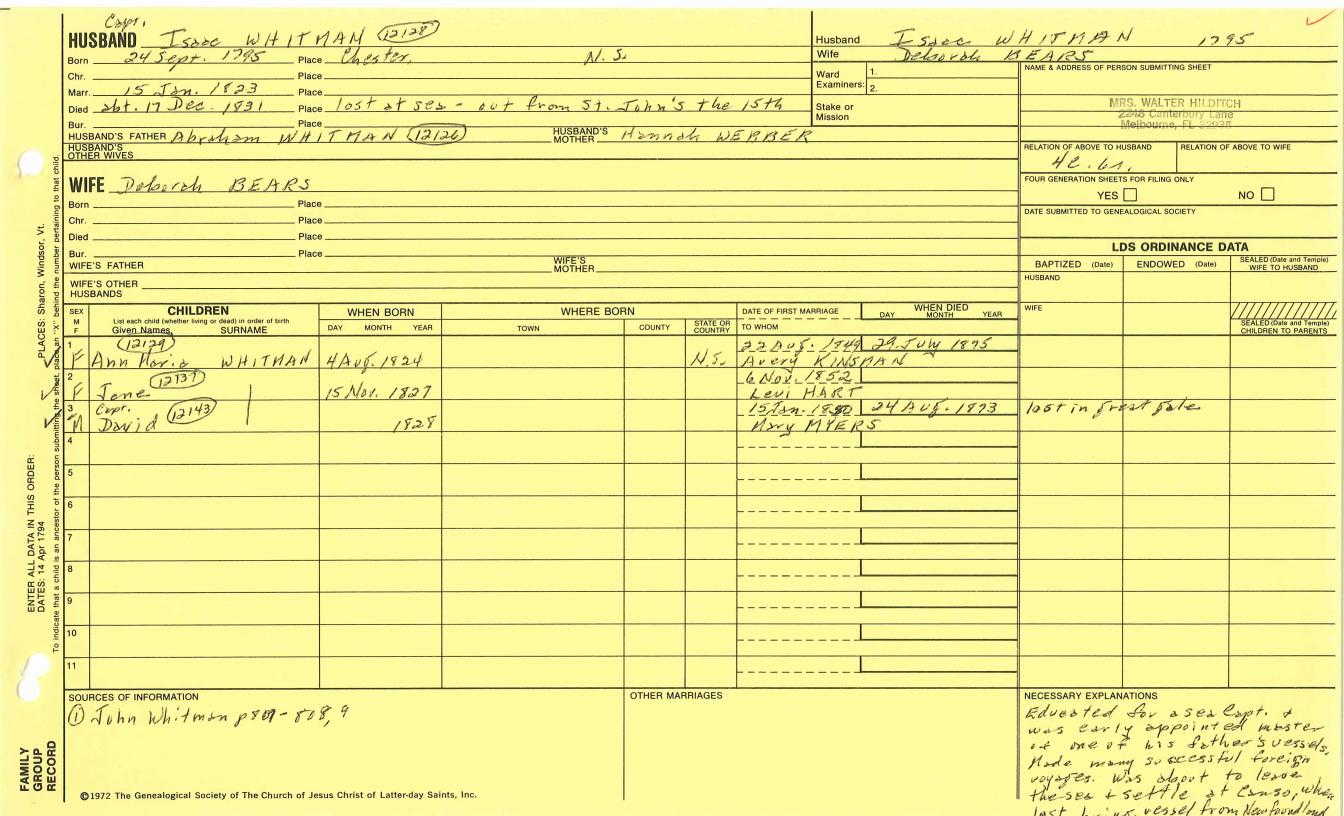 Capt.
HUSBAND Isaac WHITMAN (12128)
Born 24 Sept. 1795 Place Chester, N.S.
Chr. Place
Marr. 15 Jan. 1823 Place
Died abt. 17 Dec. 1831 Place lost at sea - out from St. John's the 15th
Bur. Place
HUSBAND'S FATHER Abraham WHITMAN (12126) HUSBAND'S MOTHER Hannah WEBBER
HUSBAND'S OTHER WIVES
Husband Isaac WHITMAN 1795
Wife Deborah BEARS
Ward Examiners: 1.
2.
Stake or Mission
NAME & ADDRESS OF PERSON SUBMITTING SHEET
MRS. WALTER HILDITCH
2248 Canterbury Lane
Melbourne, FL
RELATION OF ABOVE TO HUSBAND RELATION OF ABOVE TO WIFE
4c.6r.
FOUR GENERATION SHEETS FOR FILING ONLY
YES NO
DATE SUBMITTED TO GENEALOGICAL SOCIETY
WIFE Deborah BEARS
Born Place
Chr. Place
Died Place
Bur. Place
WIFE'S FATHER WIFE'S MOTHER
WIFE'S OTHER HUSBANDS
LDS ORDINANCE DATA
BAPTIZED (Date) ENDOWED (Date) SEALED (Date and Temple) WIFE TO HUSBAND
HUSBAND
WIFE
SEALED (Date and Temple) CHILDREN TO PARENTS
SEX M F
CHILDREN
List each child (whether living or dead) in order of birth
Given Names SURNAME
WHEN BORN
DAY MONTH YEAR
WHERE BORN
TOWN COUNTY STATE OR COUNTRY
DATE OF FIRST MARRIAGE
TO WHOM
WHEN DIED
DAY MONTH YEAR
1 (12129) 22 Aug. 1849 29 July 1895
F Ann Maria WHITMAN 4 Aug. 1824 N.S. Avery KINSMAN
2 (12137) 6 Nov. 1852
F Jane 15 Nov. 1827 Levi HART
3 Capt. (12143) 15 Jan. 24 Aug. 1873 lost in great gale
M David 1828 Mary MYERS
4
5
6
7
8
9
10
11
SOURCES OF INFORMATION
① John Whitman p 807-808, 9
OTHER MARRIAGES
NECESSARY EXPLANATIONS
Educated for a sea Capt. &
was early appointed master
of one of his father's vessels.
Made many successful foreign
voyages. Was about to leave
the sea & settle at Canso, when
lost bring vessel from Newfoundland
©1972 The Genealogical Society of The Church of Jesus Christ of Latter-day Saints, Inc.
FAMILY GROUP RECORD
ENTER ALL DATA IN THIS ORDER:
DATES: 14 Apr 1794
PLACES: Sharon, Windsor, Vt.
To indicate that a child is an ancestor of the person submitting the sheet, place an "X" behind the number pertaining to that child.